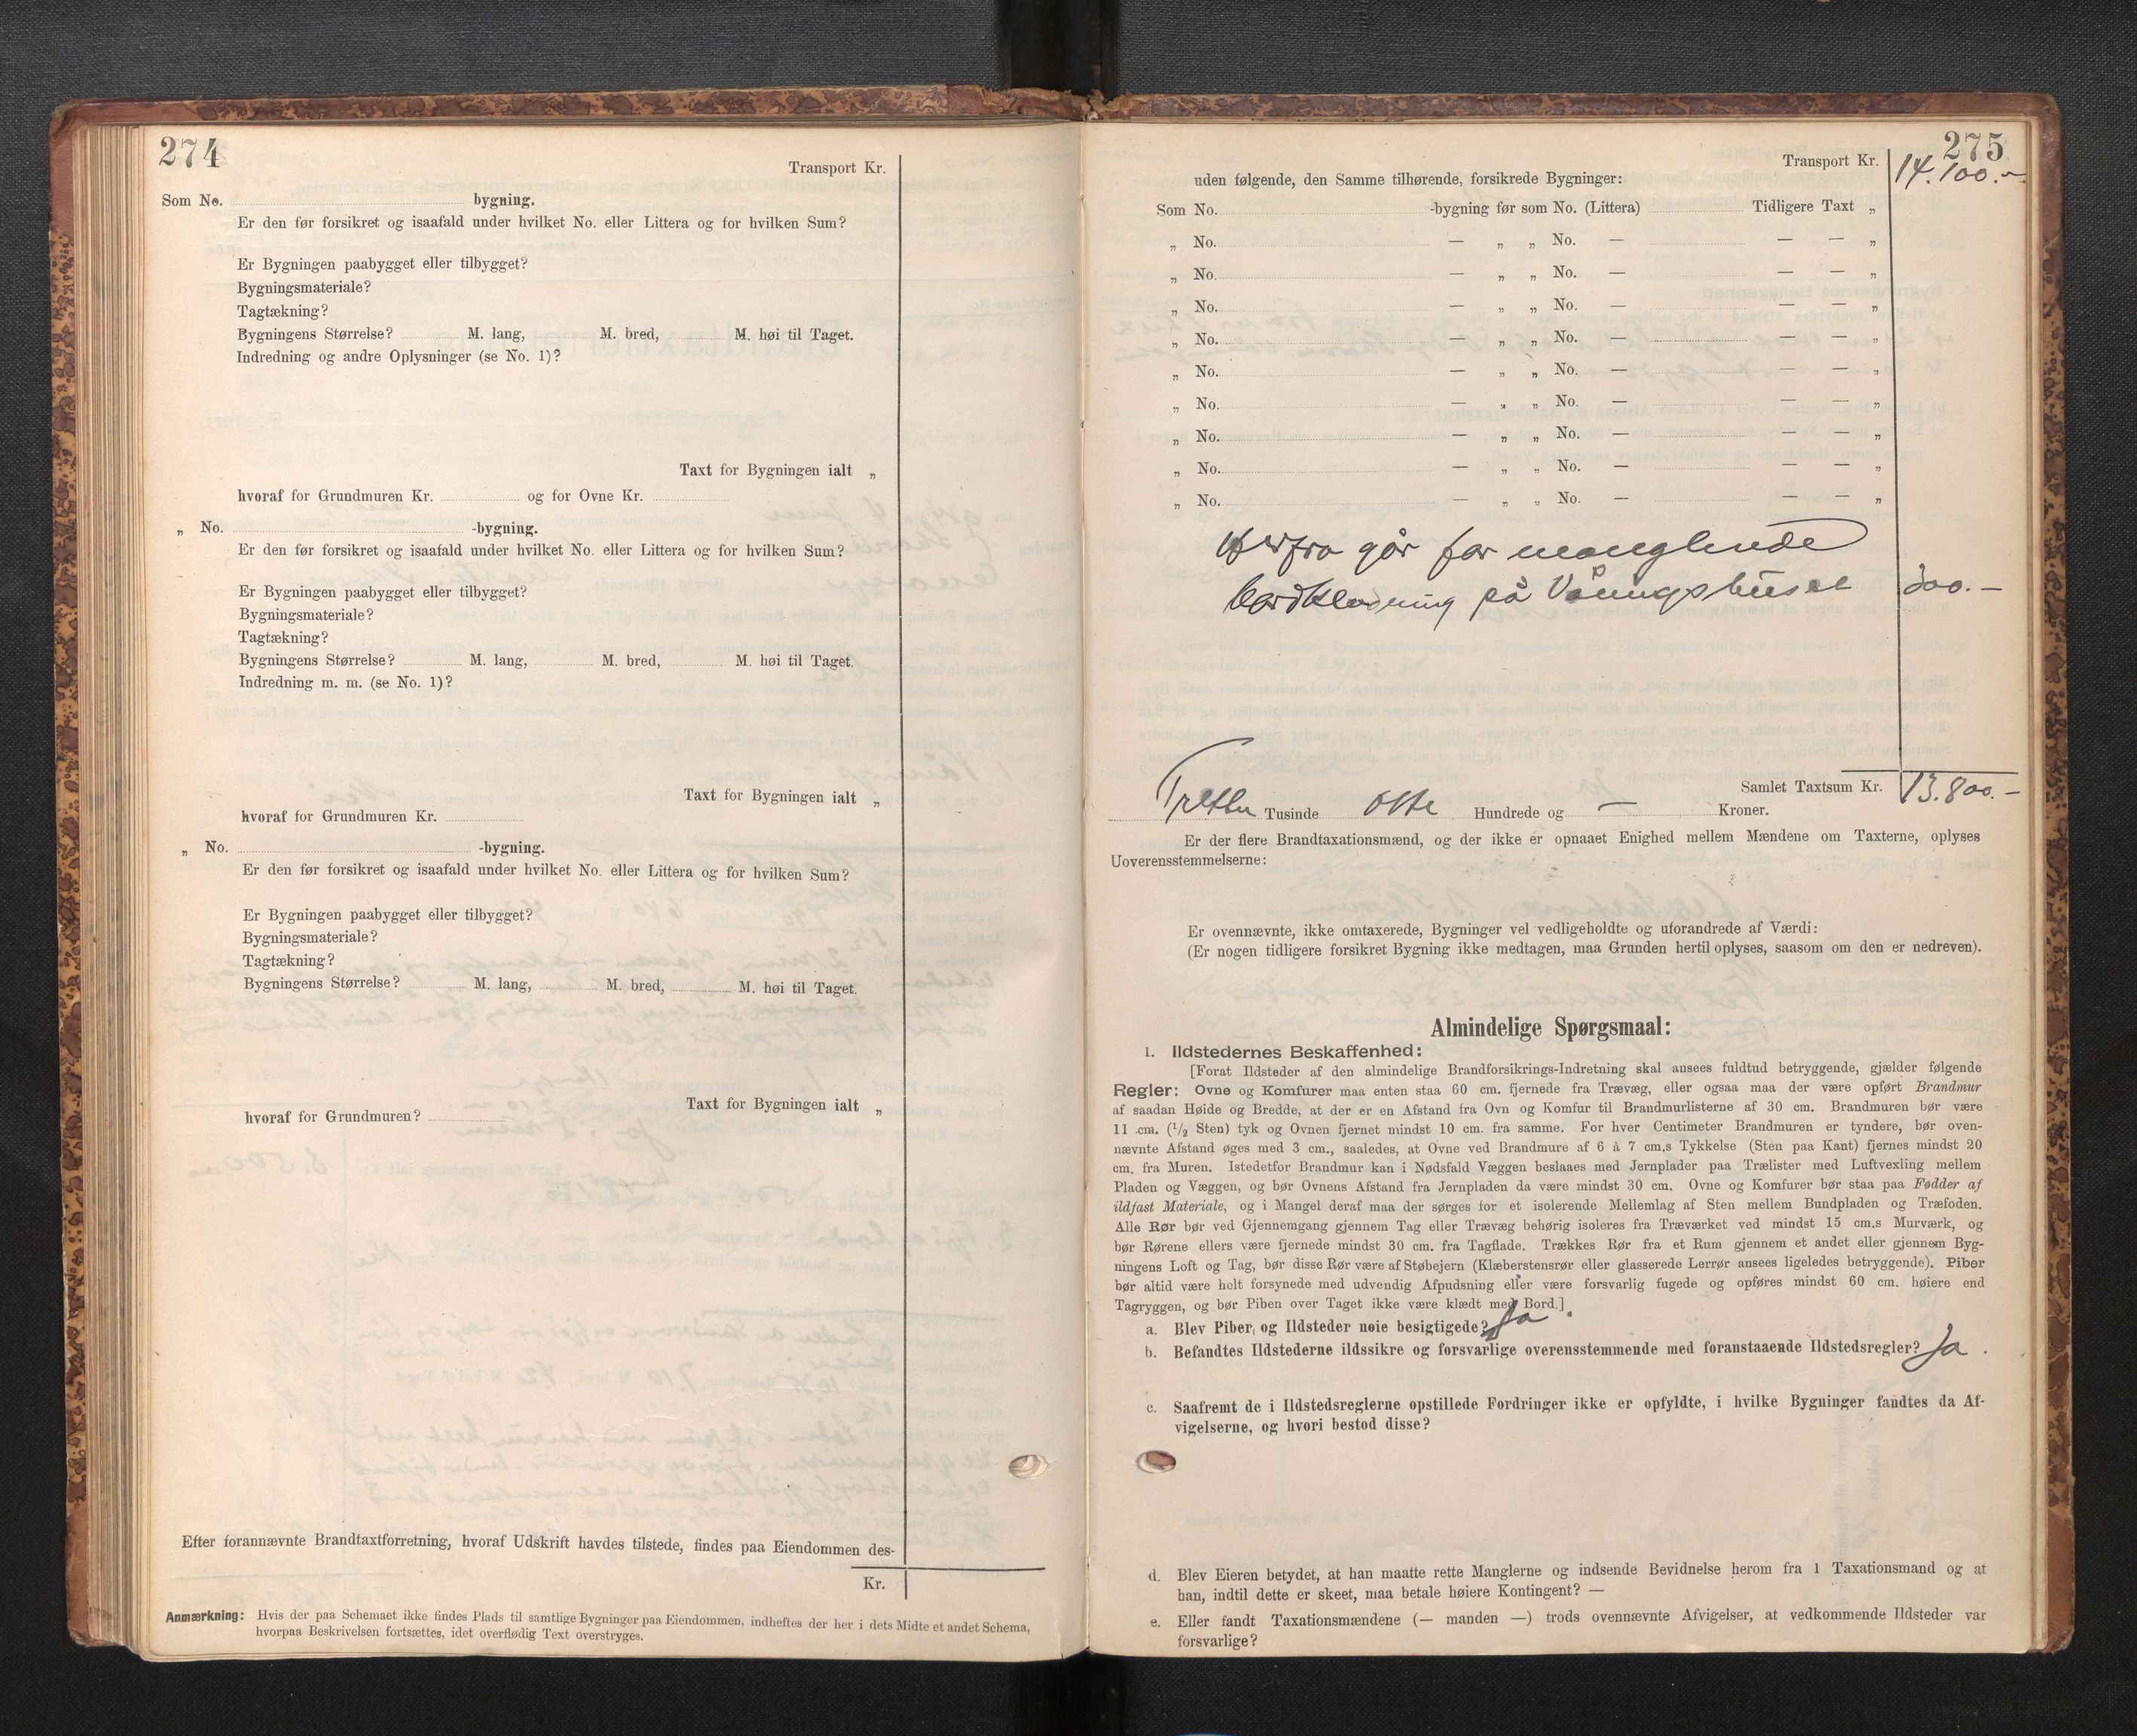 274
Transport Kr.
Som No. bygning.
Er den før forsikret og isaafald under hvilket No. eller Littera og for hvilken Sum?
Er Bygningen paabygget eller tilbygget?
Bygningsmateriale?
Tagtækning?
Bygningens Størrelse? M. lang, M. bred, M. høi til Taget.
Indredning og andre Oplysninger (se No. 1)?
Taxt for Bygningen ialt „
hvoraf for Grundmuren Kr. og for Ovne Kr.
„ No. -bygning.
Er den før forsikret og isaafald under hvilket No. eller Littera og for hvilken Sum?
Er Bygningen paabygget eller tilbygget?
Bygningsmateriale?
Tagtækning?
Bygningens Størrelse? M. lang, M. bred, M. høi til Taget.
Indredning m. m. (se No. 1)?
Taxt for Bygningen ialt „
hvoraf for Grundmuren Kr.
„ No. -bygning.
Er den før forsikret og isaafald under hvilket No. eller Littera og for hvilken Sum?
Er Bygningen paabygget eller tilbygget?
Bygningsmateriale?
Tagtækning?
Bygningens Størrelse? M. lang, M. bred, M. høi til Taget.
Taxt for Bygningen ialt „
hvoraf for Grundmuren?
Efter forannævnte Brandtaxtforretning, hvoraf Udskrift havdes tilstede, findes paa Eiendommen des-
Kr.
Anmærkning: Hvis der paa Schemaet ikke findes Plads til samtlige Bygninger paa Eiendommen, indheftes der her i dets Midte et andet Schema,
hvorpaa Beskrivelsen fortsættes, idet overflødig Text overstryges.
275
Transport Kr. 14.100.-
uden følgende, den Samme tilhørende, forsikrede Bygninger:
Som No. -bygning før som No. (Littera) Tidligere Taxt „
„ No. — „ „ No. — — — „
„ No. — „ „ No. — — — „
„ No. — „ „ No. — — — „
„ No. — „ „ No. — — — „
„ No. — „ „ No. — — — „
„ No. — „ „ No. — — — „
„ No. — „ „ No. — — — „
„ No. — „ „ No. — — — „
„ No. — „ „ No. — — — „
Herfra går for manglende
bordklædning på Våningshuset 300.-
Samlet Taxtsum Kr. 13.800.-
Tretten Tusinde otte Hundrede og — Kroner.
Er der flere Brandtaxationsmænd, og der ikke er opnaaet Enighed mellem Mændene om Taxterne, oplyses
Uoverensstemmelserne:
Er ovennævnte, ikke omtaxerede, Bygninger vel vedligeholdte og uforandrede af Værdi:
(Er nogen tidligere forsikret Bygning ikke medtagen, maa Grunden hertil oplyses, saasom om den er nedreven).
Almindelige Spørgsmaal:
1. Ildstedernes Beskaffenhed:
[Forat Ildsteder af den almindelige Brandforsikrings-Indretning skal ansees fuldtud betryggende, gjælder følgende
Regler: Ovne og Komfurer maa enten staa 60 cm. fjernede fra Trævæg, eller ogsaa maa der være opført Brandmur
af saadan Høide og Bredde, at der er en Afstand fra Ovn og Komfur til Brandmurlisterne af 30 cm. Brandmuren bør være
11 cm. (1/2 Sten) tyk og Ovnen fjernet mindst 10 cm. fra samme. For hver Centimeter Brandmuren er tyndere, bør oven-
nævnte Afstand øges med 3 cm., saaledes, at Ovne ved Brandmure af 6 à 7 cm.s Tykkelse (Sten paa Kant) fjernes mindst 20
cm. fra Muren. Istedetfor Brandmur kan i Nødsfald Væggen beslaaes med Jernplader paa Trælister med Luftvexling mellem
Pladen og Væggen, og bør Ovnens Afstand fra Jernpladen da være mindst 30 cm. Ovne og Komfurer bør staa paa Fødder af
ildfast Materiale, og i Mangel deraf maa der sørges for et isolerende Mellemlag af Sten mellem Bundpladen og Træfoden.
Alle Rør bør ved Gjennemgang gjennem Tag eller Trævæg behørig isoleres fra Træværket ved mindst 15 cm.s Murværk, og
bør Rørene ellers være fjernede mindst 30 cm. fra Tagflade. Trækkes Rør fra et Rum gjennem et andet eller gjennem Byg-
ningens Loft og Tag, bør disse Rør være af Støbejern (Klæberstensrør eller glasserede Lerrør ansees ligeledes betryggende). Piber
bør altid være helt forsynede med udvendig Afpudsning eller være forsvarlig fugede og opføres mindst 60 cm. høiere end
Tagryggen, og bør Piben over Taget ikke være klædt med Bord.]
a. Blev Piber og Ildsteder nøie besigtigede? Ja.
b. Befandtes Ildstederne ildssikre og forsvarlige overensstemmende med foranstaaende Ildstedsregler? Ja.
c. Saafremt de i Ildstedsreglerne opstillede Fordringer ikke er opfyldte, i hvilke Bygninger fandtes da Af-
vigelserne, og hvori bestod disse?
d. Blev Eieren betydet, at han maatte rette Manglerne og indsende Bevidnelse herom fra 1 Taxationsmand og at
han, indtil dette er skeet, maa betale høiere Kontingent? —
e. Eller fandt Taxationsmændene (— manden —) trods ovennævnte Afvigelser, at vedkommende Ildsteder var
forsvarlige?